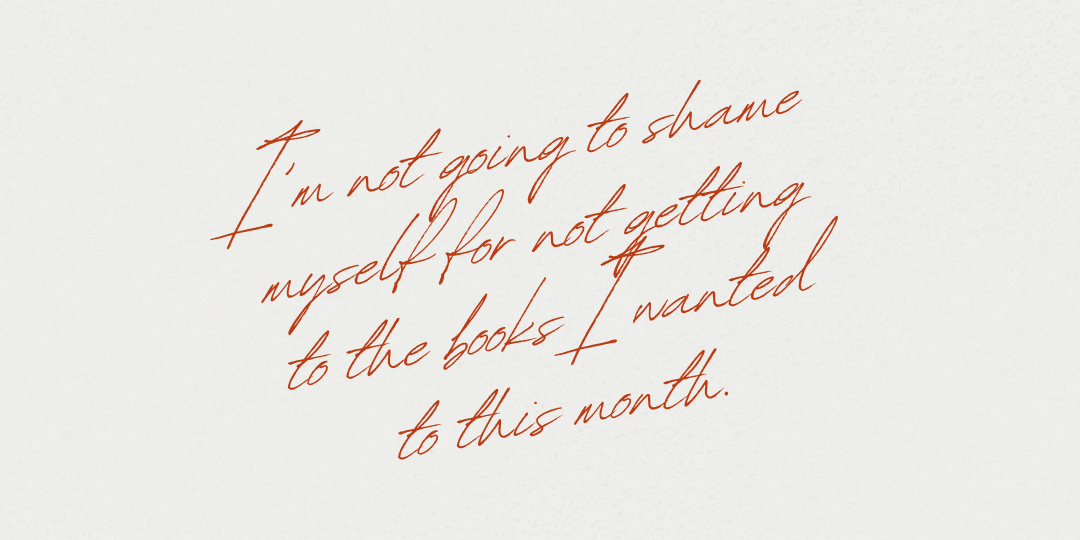 I'm not going to shame
myself for not getting
to the books I wanted
to this month.